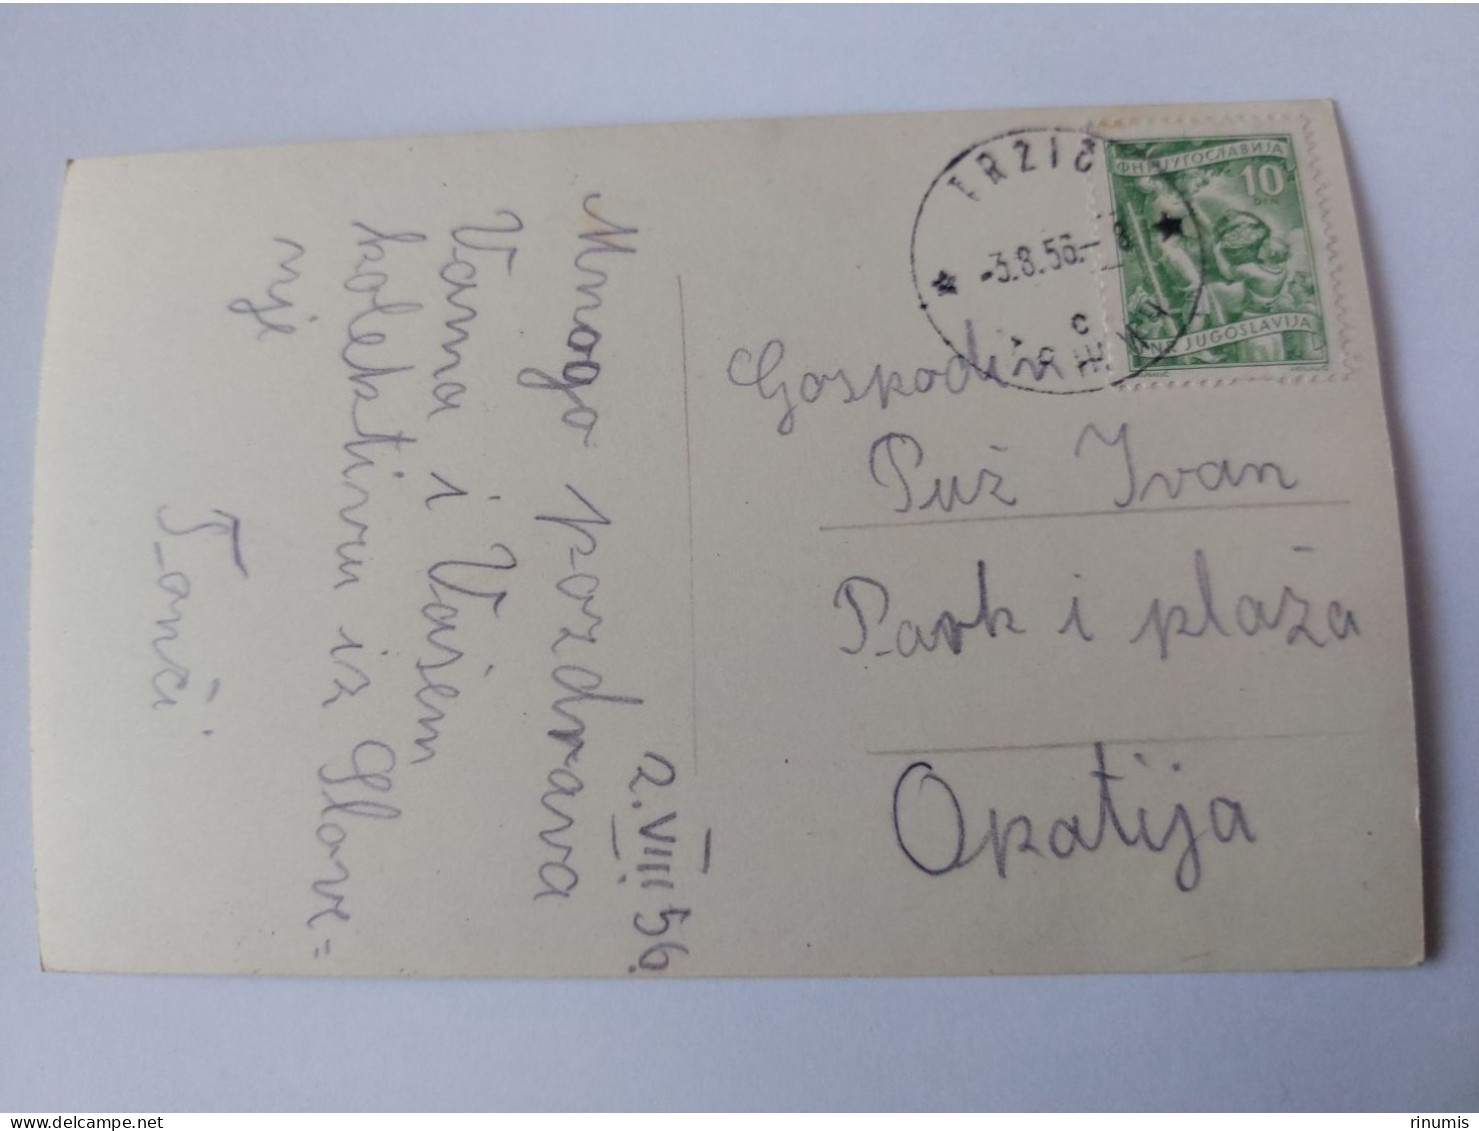 2.VIII 56.
Mnogo pozdrava
Vama i Vašem
kolektivu iz Slove=
nije
Tonči.
TRŽIČ
-3.8.56.-8
c
ФНР ЈУГОСЛАВИЈА
10
DIN
FNR JUGOSLAVIJA
Gospodin
Puž Ivan
Park i plaža
Opatija
delcampe.net
rinumis